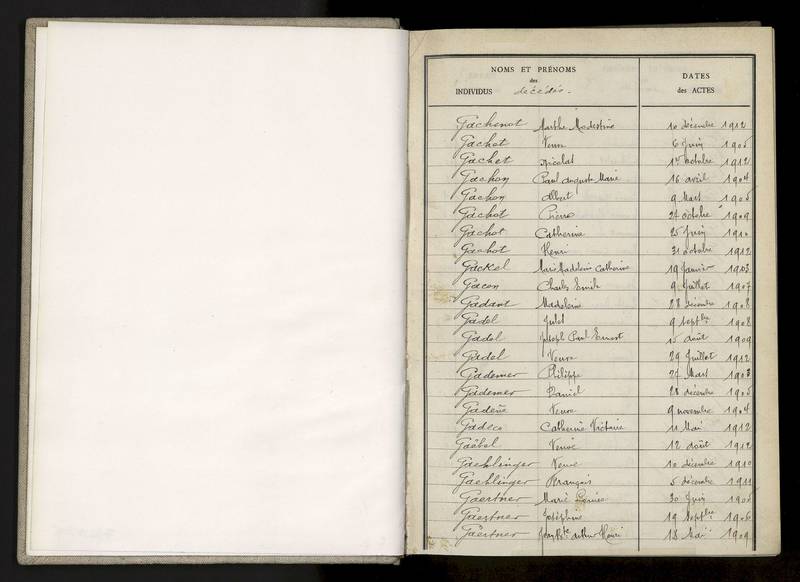 NOMS ET PRÉNOMS
des
INDIVIDUS décédés.
DATES
des ACTES
Gachenot Marthe Modestine 10 décembre 1912
Gachet Veuve 6 Juin 1905
Gachet Nicolas 1er octobre 1912
Gachon Paul Auguste Marie 16 avril 1904
Gachon Albert 9 Mars 1905
Gachot Pierre 27 octobre 1909
Gachot Catherine 25 Juin 1910
Gachot Henri 31 octobre 1912
Gackel Marie Madeleine Catherine 19 Janvier 1903
Gacon Charles Emile 9 Juillet 1907
Gadant Madeleine 28 décembre 1908
Gadel Jules 9 Septbre 1908
Gadel Joseph Paul Ernest 15 août 1909
Gadel Veuve 29 Juillet 1912
Gademer Philippe 27 Mars 1903
Gademer Daniel 28 décembre 1905
Gadene Veuve 9 novembre 1904
Gadeco Catherine Victoire 11 Mai 1912
Gaëbel Veuve 12 août 1912
Gaehlinger Veuve 10 décembre 1910
Gaehlinger François 5 décembre 1911
Gaertner Marie Louise 30 Juin 1905
Gaertner Joséphine 19 Septbre 1906
Gaertner Jean Bte Arthur Henri 18 Mai 1909